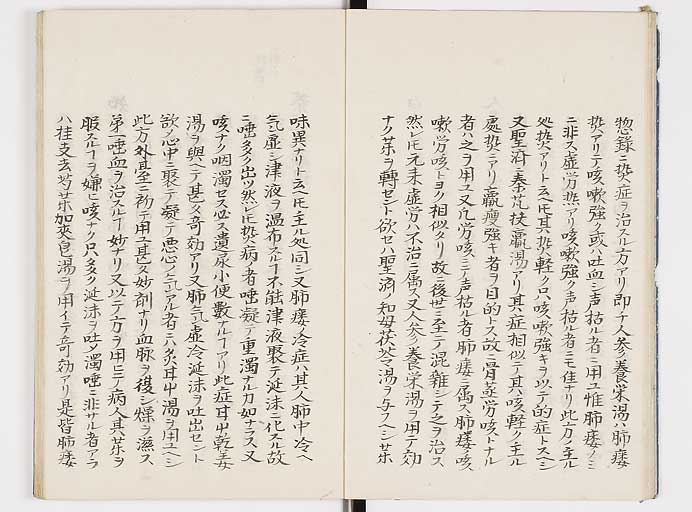 惣錄ニ熱症ヲ治スル方アリ即チ人参養栄湯ハ肺癰
熱アリテ咳嗽強ク或ハ吐血シ声枯ル者ニ用ユ惟肺痿ノミ
ニ非ス虚労熱アリ咳嗽強ク声枯ル者ニモ佳ナリ此方ノ主ル
処熱アリト云ヘ𪜈其熱軽ク只咳嗽強キヲ以テ的症トスヘシ
又聖済ノ秦艽扶羸湯アリ其症相似テ其咳軽ク主ル
処熱ニアリ羸瘦強キ者ヲ目的トス故ニ骨蒸労咳トナル
者ハ之ヲ用ユ又凢労咳ニテ声枯ル者肺痿ニ属ス肺痿ノ咳
嗽労咳トヨク相似タリ故ニ後世ニ至テ混雜シテ之ヲ治ス
然レ𪜈元来虚労ハ不治ニ属ス又人参養栄湯ヲ用テ効
ナク薬ヲ轉セント欲セハ聖済ノ知母茯苓湯ヲ与スヘシ薬
味異ナリト云ヘ𪜈主ル処同シ又肺痿ノ冷症ハ其人肺中冷ヘ
気虚シ津液ヲ温布スルヿ不能津液聚テ涎沫ニ化スル故
ニ唾多ク出ツ然レ𪜈熱病ノ者唾凝テ重濁ナルカ如ナラス又
咳ナク咽濁セス必ス遺尿小便數アルヿアリ此症甘草乾姜
湯ヲ與ヘテ甚タ奇効アリ又肺気虚冷涎沫ヲ吐出セント
欲ノ心中ニ聚テ凝テ悪心ノ気アル者ニハ炙甘草湯ヲ用ユヘシ
此方外臺ニ初テ用ユ甚タ妙剤ナリ血脉ヲ復シ燥ヲ滋ス
第一唾血ヲ治スルヿ妙ナリ又以テ方ヲ用ヒテ病人其薬ヲ
服スルヿヲ嫌ヒ咳ナク只多ク涎沫ヲ吐〆濁唾ニ非サル者アラ
ハ桂支去芍薬加皂莢湯ヲ用イテ奇効アリ是皆肺痿